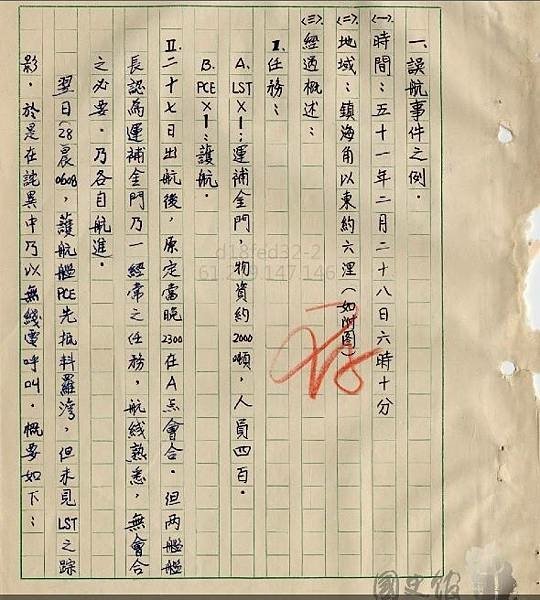 一、誤航事件之例．
㈠時間：五十一年二月二十八日六時十分
㈡地域：鎮海角以東約六浬（如附圖）
㈢經過概述：
I.任務：
A. LST×1：運補金門，物資約2000噸，人員四百．
B. PCE×1：護航．
II.二十七日出航後，原定當晚2300在A点會合．但两艦艦
長認為運補金門乃一經常之任務，航线熟悉，無會合
之必要．乃各自航進．
翌日（28晨0608，護航艦PCE先抵料羅湾，但未見LST之踪
影．於是在詫異中乃以無线電呼叫．概要如下：
d18fed32-2
國史館